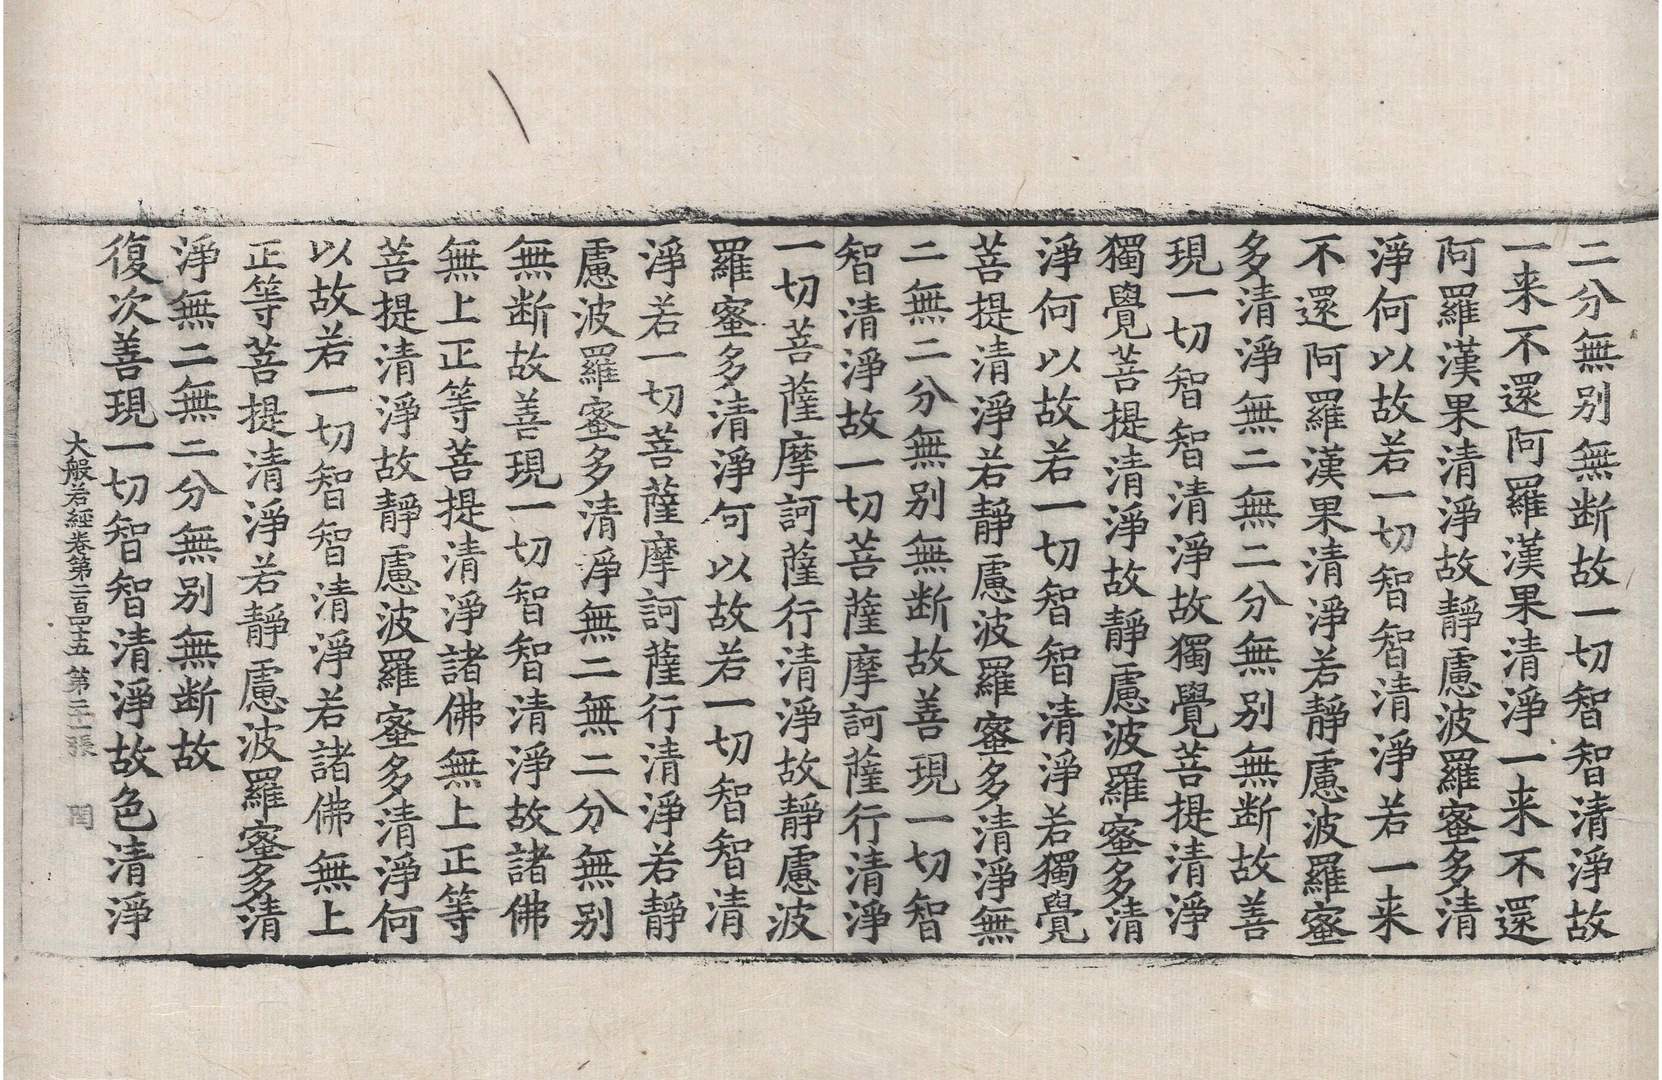 二分無别無断故一切智智清淨故
一来不還阿羅漢果清淨一来不還
阿羅漢果清淨故靜慮波羅蜜多清
淨何以故若一切智智清淨若一来
不還阿羅漢果清淨若靜慮波羅蜜
多清淨無二無二分無别無断故善
現一切智智清淨故獨覺菩提清淨
獨覺菩提清淨故靜慮波羅蜜多清
淨何以故若一切智智清淨若獨覺
菩提清淨若靜慮波羅蜜多清淨無
二無二分無别無断故善現一切智
智清淨故一切菩薩摩訶薩行清淨
一切菩薩摩訶薩行清淨故靜慮波
羅蜜多清淨何以故若一切智智清
淨若一切菩薩摩訶薩行清淨若靜
慮波羅蜜多清淨無二無二分無别
無断故善現一切智智清淨故諸佛
無上正等菩提清淨諸佛無上正等
菩提清淨故靜慮波羅蜜多清淨何
以故若一切智智清淨若諸佛無上
正等菩提清淨若靜慮波羅蜜多清
淨無二無二分無别無断故
復次善現一切智智清淨故色清淨
大般若經卷第二百四十五 第二張 閏